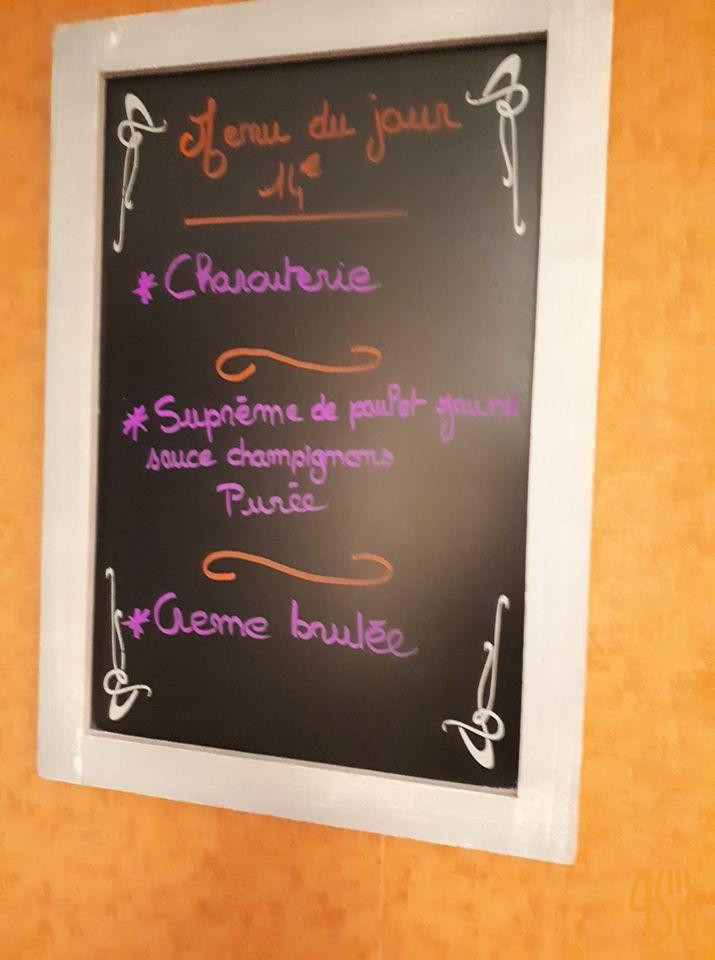 Menu du jour
14€
* Charcuterie
* Suprême de poulet jaune
sauce champignons
Purée
* Creme brulée